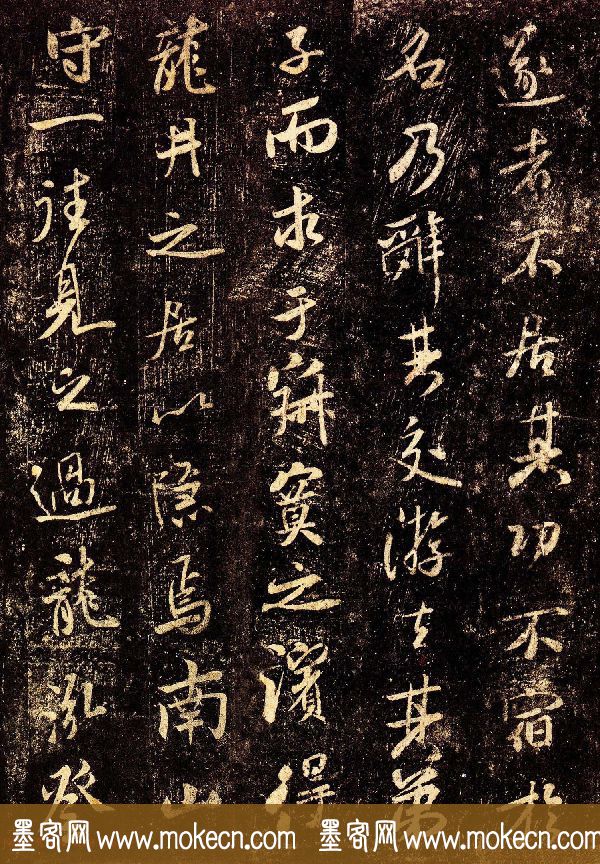 遂者不居其功不宿於
名乃辭其交游去其弟
子而求于寂寞之濱得
龍井之居以隱焉南山
守一往見之過龍泓登
墨客网 www.mokecn.com 墨客网 www.mokecn.com